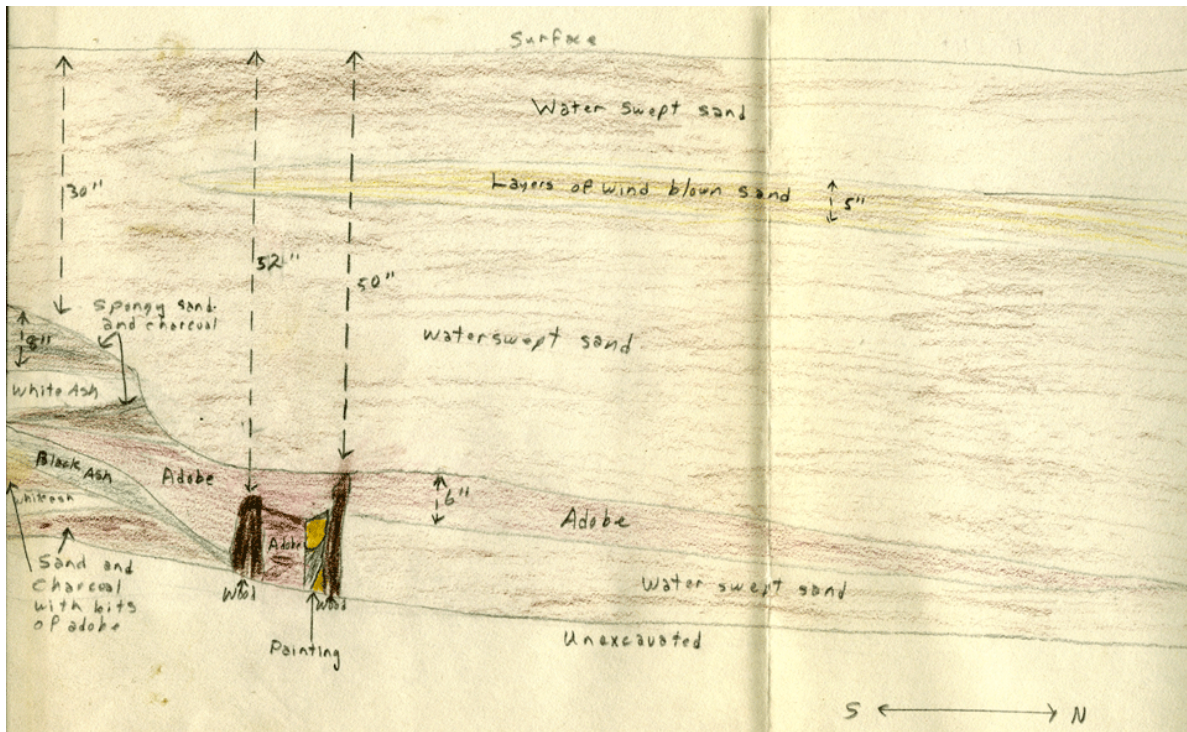 Surface
Water swept sand
30"
Layers of wind blown sand
5"
52"
50"
Spongy sand
and charcoal
8"
Water swept sand
White Ash
Black Ash
Adobe
6"
Adobe
White ash
Adobe
Sand and
Charcoal
with bits
of adobe
Wood
Wood
Water swept sand
Painting
Unexcavated
S
N